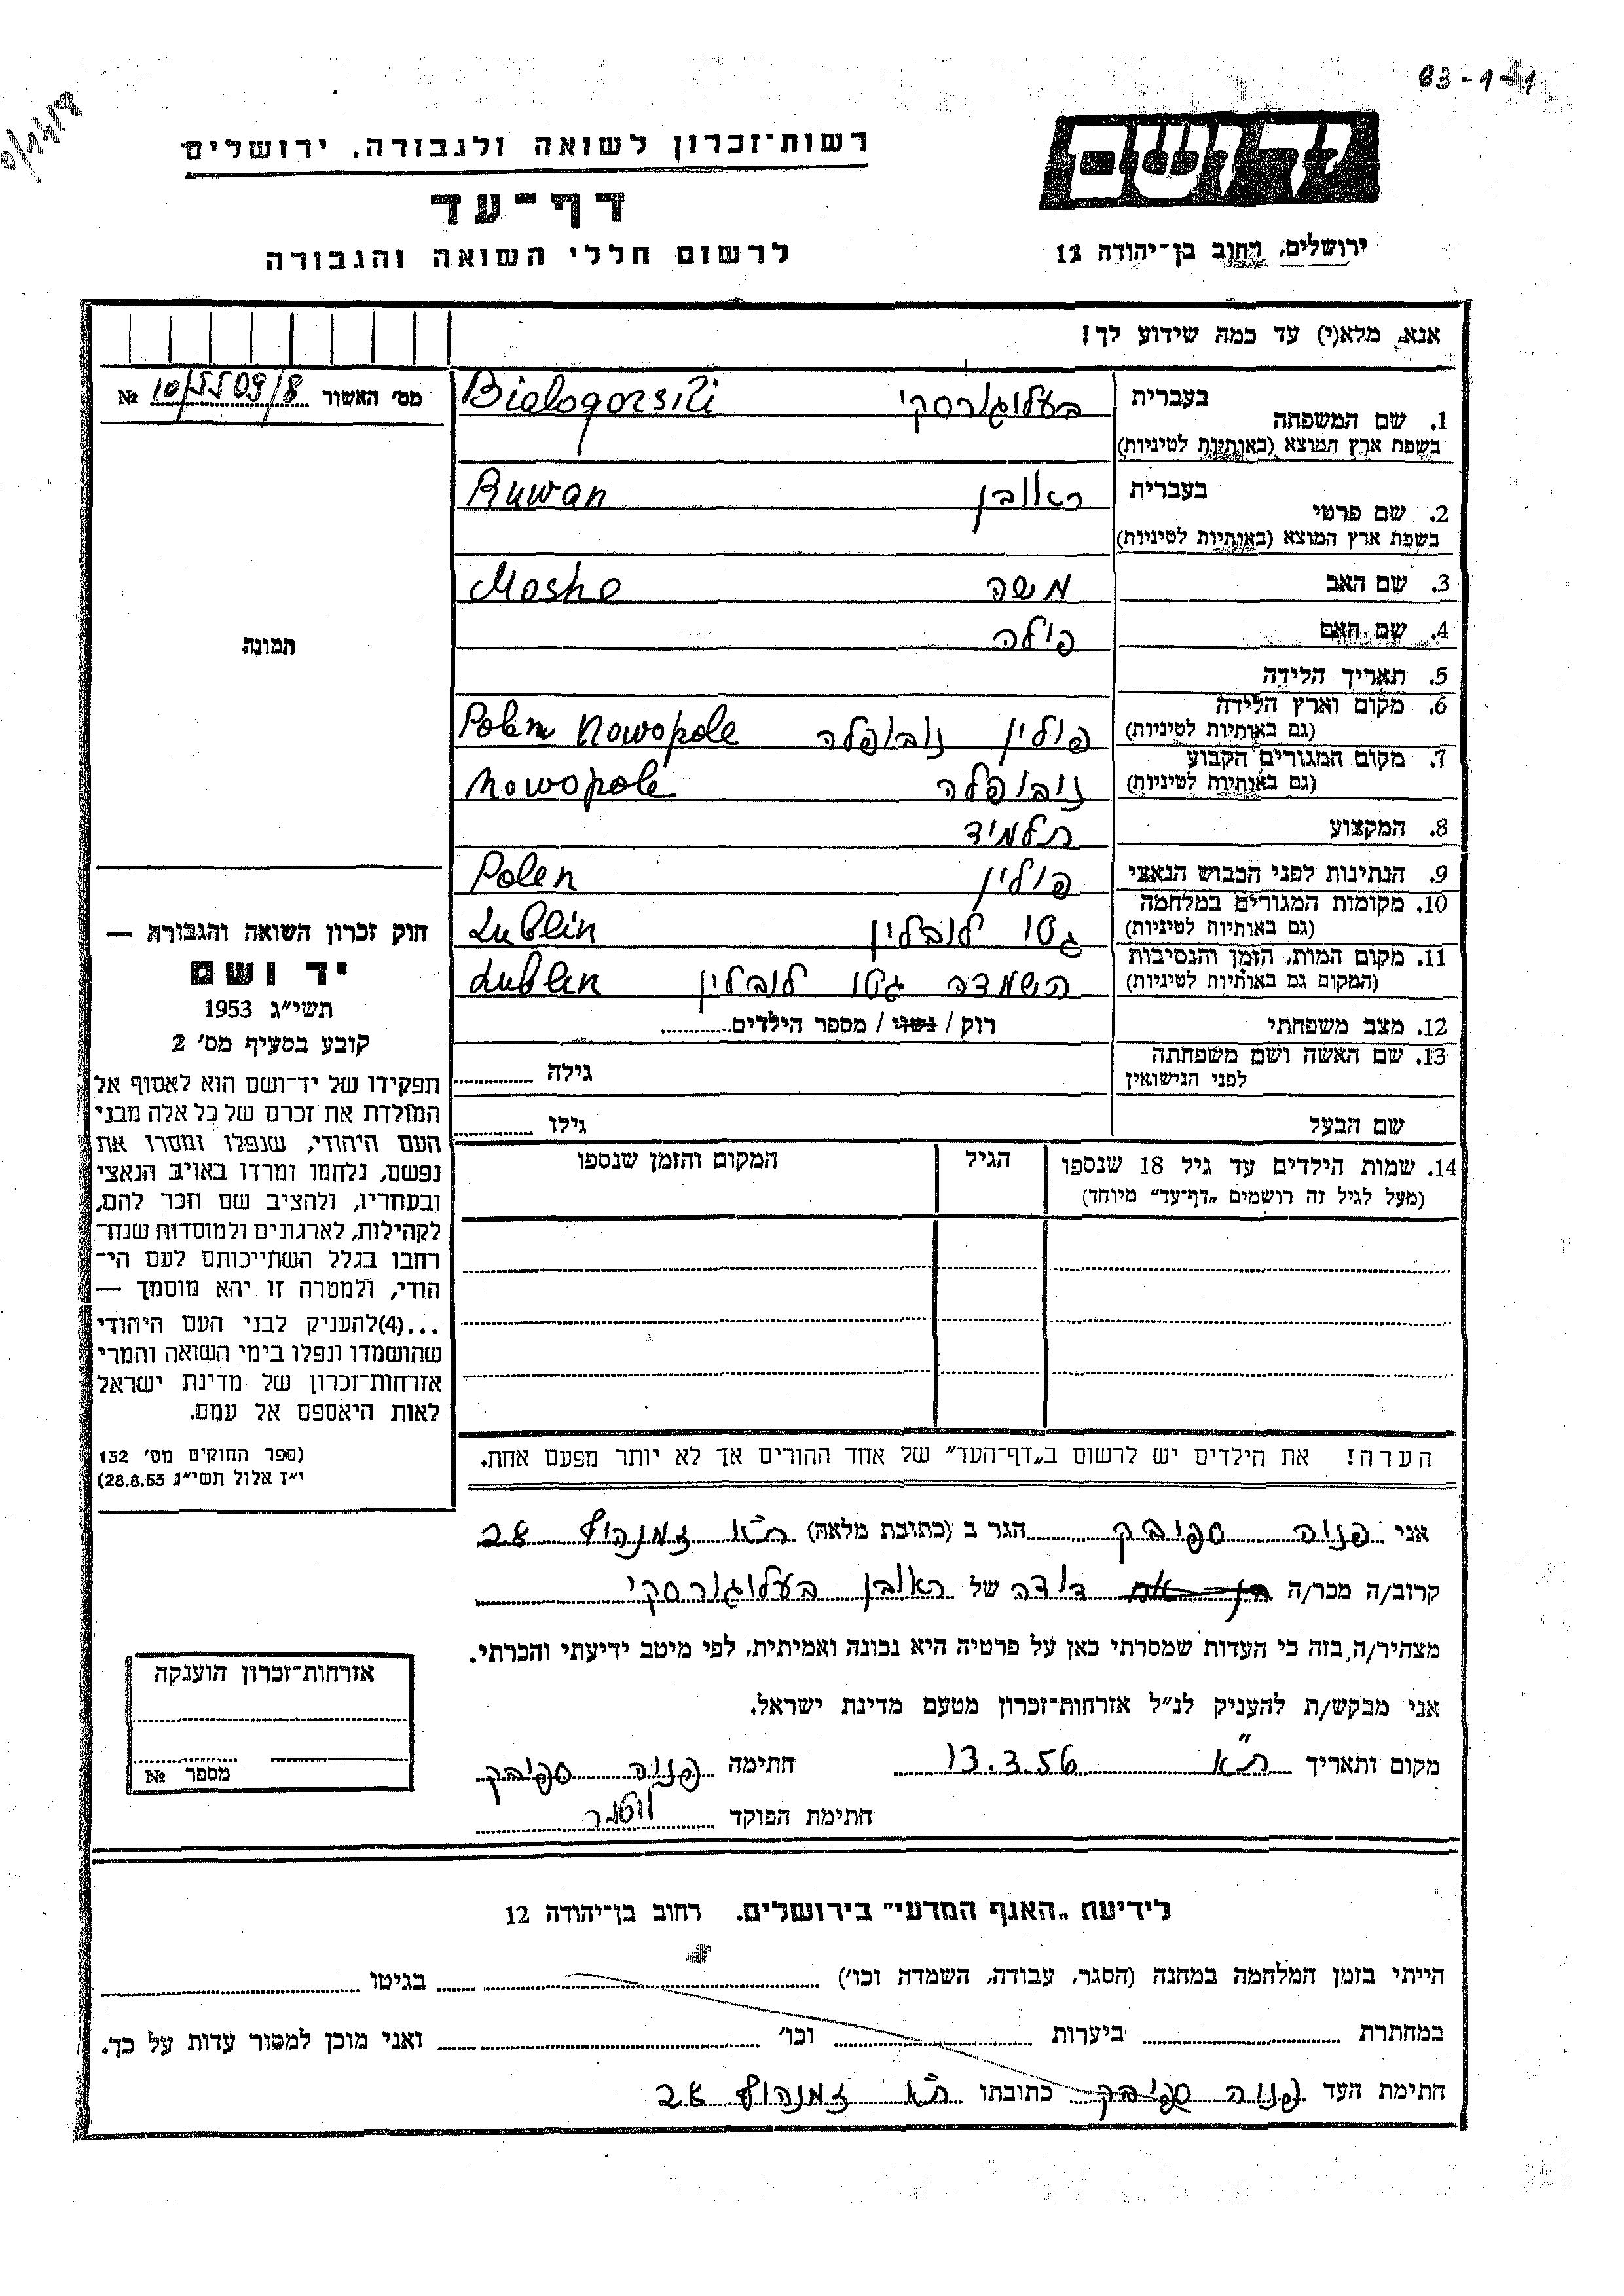 83-1-1
יד ושם
ירושלים, רחוב בן־יהודה 12
רשות־זכרון לשואה ולגבורה, ירושלים
דף־עד
לרשום חללי השואה והגבורה
אנא, מלא(י) עד כמה שידוע לך!
מס׳ האשור № 10/5509/8
1. שם המשפחה בעברית בעלוגורסקי Bialogorski
בשפת ארץ המוצא (באותיות לטיניות)
2. שם פרטי בעברית ראובן Ruwan
בשפת ארץ המוצא (באותיות לטיניות)
3. שם האב משה Moshe
4. שם האם פילה
5. תאריך הלידה
6. מקום וארץ הלידה
(גם באותיות לטיניות) פולין נובופלה Polen Nowopole
7. מקום המגורים הקבוע
(גם באותיות לטיניות) נובופלה Nowopole
8. המקצוע תלמיד
9. הנתינות לפני הכבוש הנאצי פולין Polen
10. מקומות המגורים במלחמה
(גם באותיות לטיניות) גטו לובלין Lublin
11. מקום המות, הזמן והנסיבות
(המקום גם באותיות לטיניות) השמדה גטו לובלין Lublin
12. מצב משפחתי רוק / נשוי / מספר הילדים
13. שם האשה ושם משפחתה
לפני הנישואין גילה
שם הבעל גילו
14. שמות הילדים עד גיל 18 שנספו הגיל המקום והזמן שנספו
(מעל לגיל זה רושמים „דף־עד” מיוחד)
הערה! את הילדים יש לרשום ב„דף־העד” של אחד ההורים אך לא יותר מפעם אחת.
תמונה
חוק זכרון השואה והגבורה —
יד ושם
תשי״ג 1953
קובע בסעיף מס׳ 2
תפקידו של יד־ושם הוא לאסוף אל
המולדת את זכרם של כל אלה מבני
העם היהודי, שנפלו ומסרו את
נפשם, נלחמו ומרדו באויב הנאצי
ובעוזריו, ולהציב שם וזכר להם,
לקהילות, לארגונים ולמוסדות שנח־
רחבו בגלל השתייכותם לעם הי־
הודי, ולמטרה זו יהא מוסמך —
...(4)להעניק לבני העם היהודי
שהושמדו ונפלו בימי השואה והמרי
אזרחות־זכרון של מדינת ישראל
לאות היאספם אל עמם.
(ספר החוקים מס׳ 132
י״ז אלול תשי״ג 28.8.53)
אני פניה ספיבק הגר ב (כתיבת מלאה) ת״א זמנהוף 28
קרוב/ה מכר/ה דודה של ראובן בעלוגורסקי
מצהיר/ה בזה כי העדות שמסרתי כאן על פרטיה היא נכונה ואמיתית, לפי מיטב ידיעתי והכרתי.
אני מבקש/ת להעניק לנ״ל אזרחות־זכרון מטעם מדינת ישראל.
מקום ותאריך ת״א 13.3.56 חתימה פניה ספיבק
חתימת הפוקד
אזרחות־זכרון הוענקה
מספר №
לידיעת „האגף המדעי” בירושלים. רחוב בן־יהודה 12
הייתי בזמן המלחמה במחנה (הסגר, עבודה, השמדה וכו׳) בגיטו
במחתרת ביערות וכו׳ ואני מוכן למסור עדות על כך.
חתימת העד פניה ספיבק כתובתו ת״א זמנהוף 28